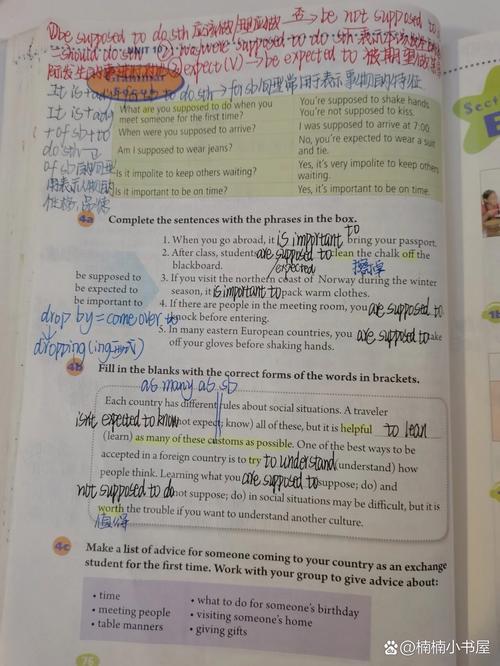 ①be supposed to do sth 应该做/理应做 否→be not supposed to
=should do sth UNIT 10 ②was/were supposed to do sth 表示
expect(v)→be expected to 被期望做某事
Grammar
It is+adj+for sb to do sth→for sb句型常用于表示事物的特征
It is+adj
+of sb+to
do sth
of sb
What are you supposed to do when you meet someone for the first time?
You're supposed to shake hands. You're not supposed to kiss.
When were you supposed to arrive?
I was supposed to arrive at 7:00.
Am I supposed to wear jeans?
No, you're expected to wear a suit and tie.
Is it impolite to keep others waiting?
Yes, it's very impolite to keep others waiting.
Is it important to be on time?
Yes, it's important to be on time.
4a Complete the sentences with the phrases in the box.
be supposed to
be expected to
be important to
1. When you go abroad, it is important to bring your passport.
2. After class, students are supposed to clean the chalk off the
/expected
blackboard.
3. If you visit the northern coast of Norway during the winter
season, it is important to pack warm clothes.
4. If there are people in the meeting room, you are supposed to
knock before entering.
5. In many eastern European countries, you are supposed to take
off your gloves before shaking hands.
drop by=come over to
dropping(ing形式)
4b Fill in the blanks with the correct forms of the words in brackets.
as many as sb
Each country has different rules about social situations. A traveler
isnt expected to know not expect; know) all of these, but it is helpful to lean
(learn) as many of these customs as possible. One of the best ways to be
accepted in a foreign country is to try to understand (understand) how
people think. Learning what you are supposed to suppose; do) and
not supposed to do not suppose; do) in social situations may be difficult, but it is
worth the trouble if you want to understand another culture.
值得
4c Make a list of advice for someone coming to your country as an exchange
student for the first time. Work with your group to give advice about:
• time
• meeting people
• table manners
• what to do for someone's birthday
• visiting someone's home
• giving gifts
76
@楠楠小书屋